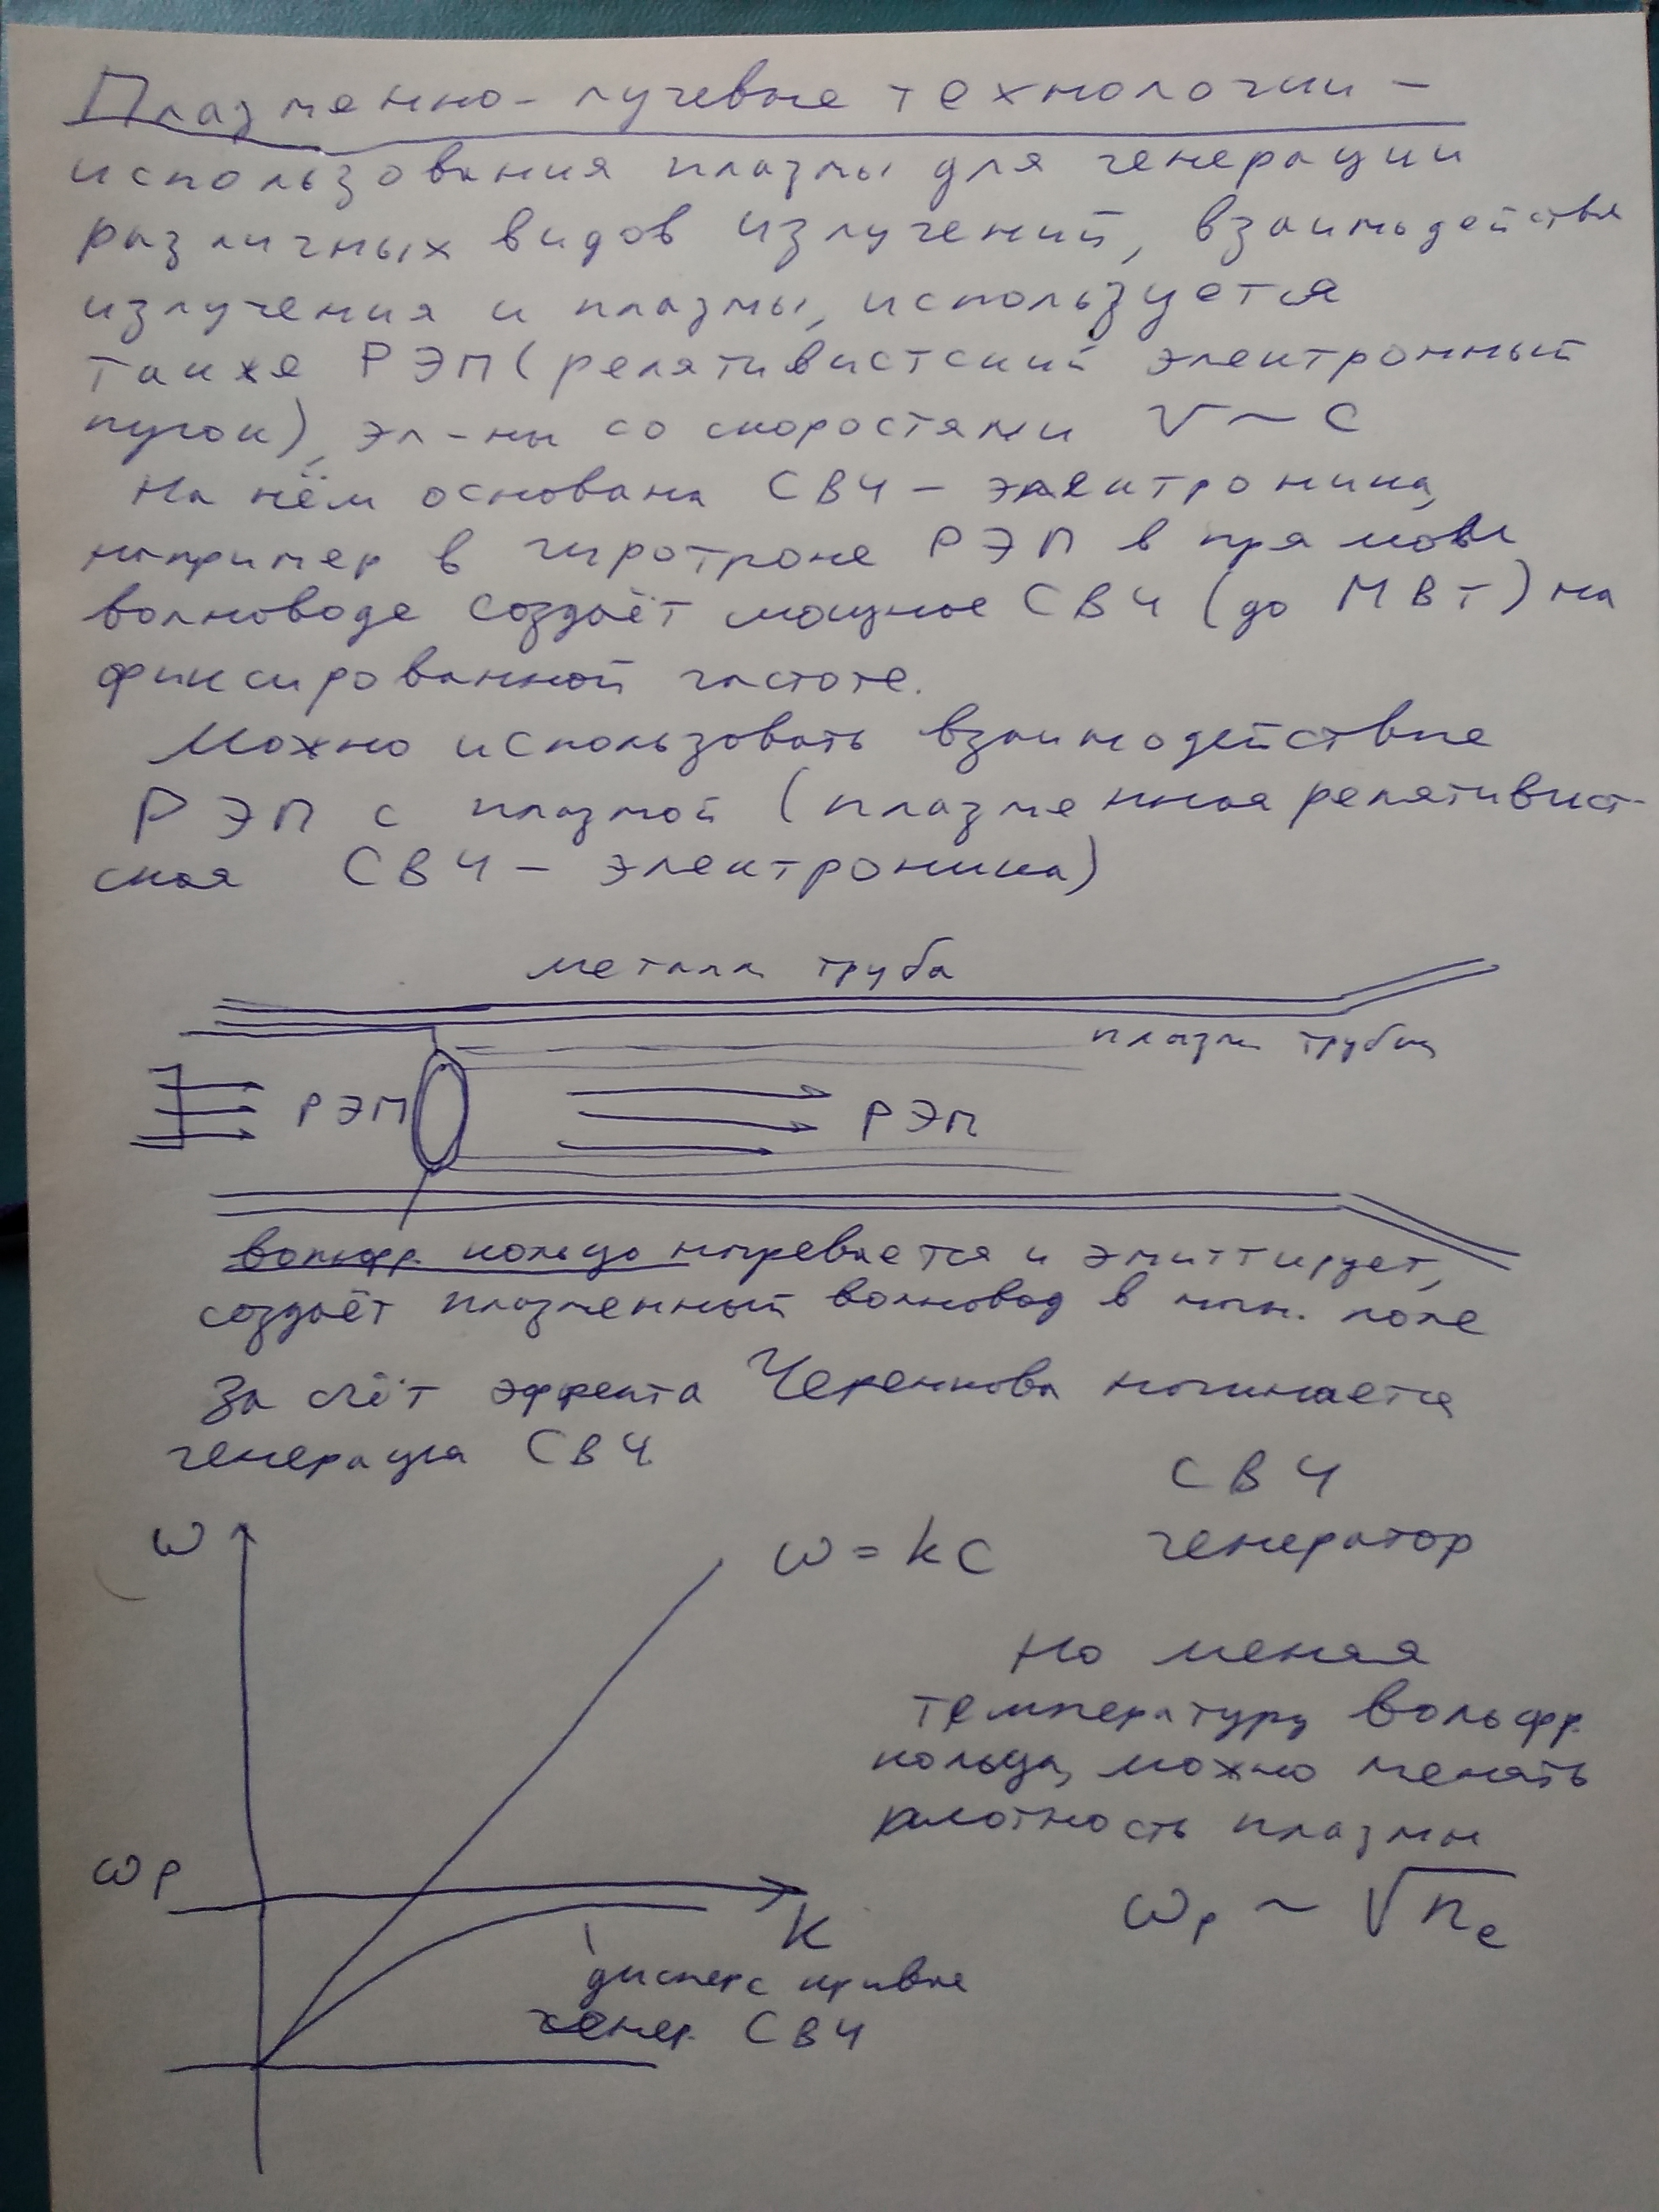 Плазменно-лучевые технологии –
использования плазмы для генерации
различных видов излучений, взаимодействия
излучения и плазмы, используется
также РЭП (релятивистский электронный
пучок), эл-ны со скоростями V ~ C
На нём основана СВЧ – электроника,
например в гиротроне РЭП в
волноводе создаёт мощное СВЧ (до МВт) на
фиксированной частоте.
Можно использовать взаимодействие
РЭП с плазмой (плазменная релятивист-
ская СВЧ – электроника)
металл труба
плазм трубка
РЭП
РЭП
вольфр. кольцо нагревается и эмиттирует,
создаёт плазменный волновод в магн. поле
За счёт эффекта Черенкова начинается
генерация СВЧ
СВЧ
генератор
ω
ω = kC
Но меняя
температуру вольфр.
кольца, можно менять
плотность плазмы
ωp ~ √ne
ωp
K
дисперс кривые
генер. СВЧ